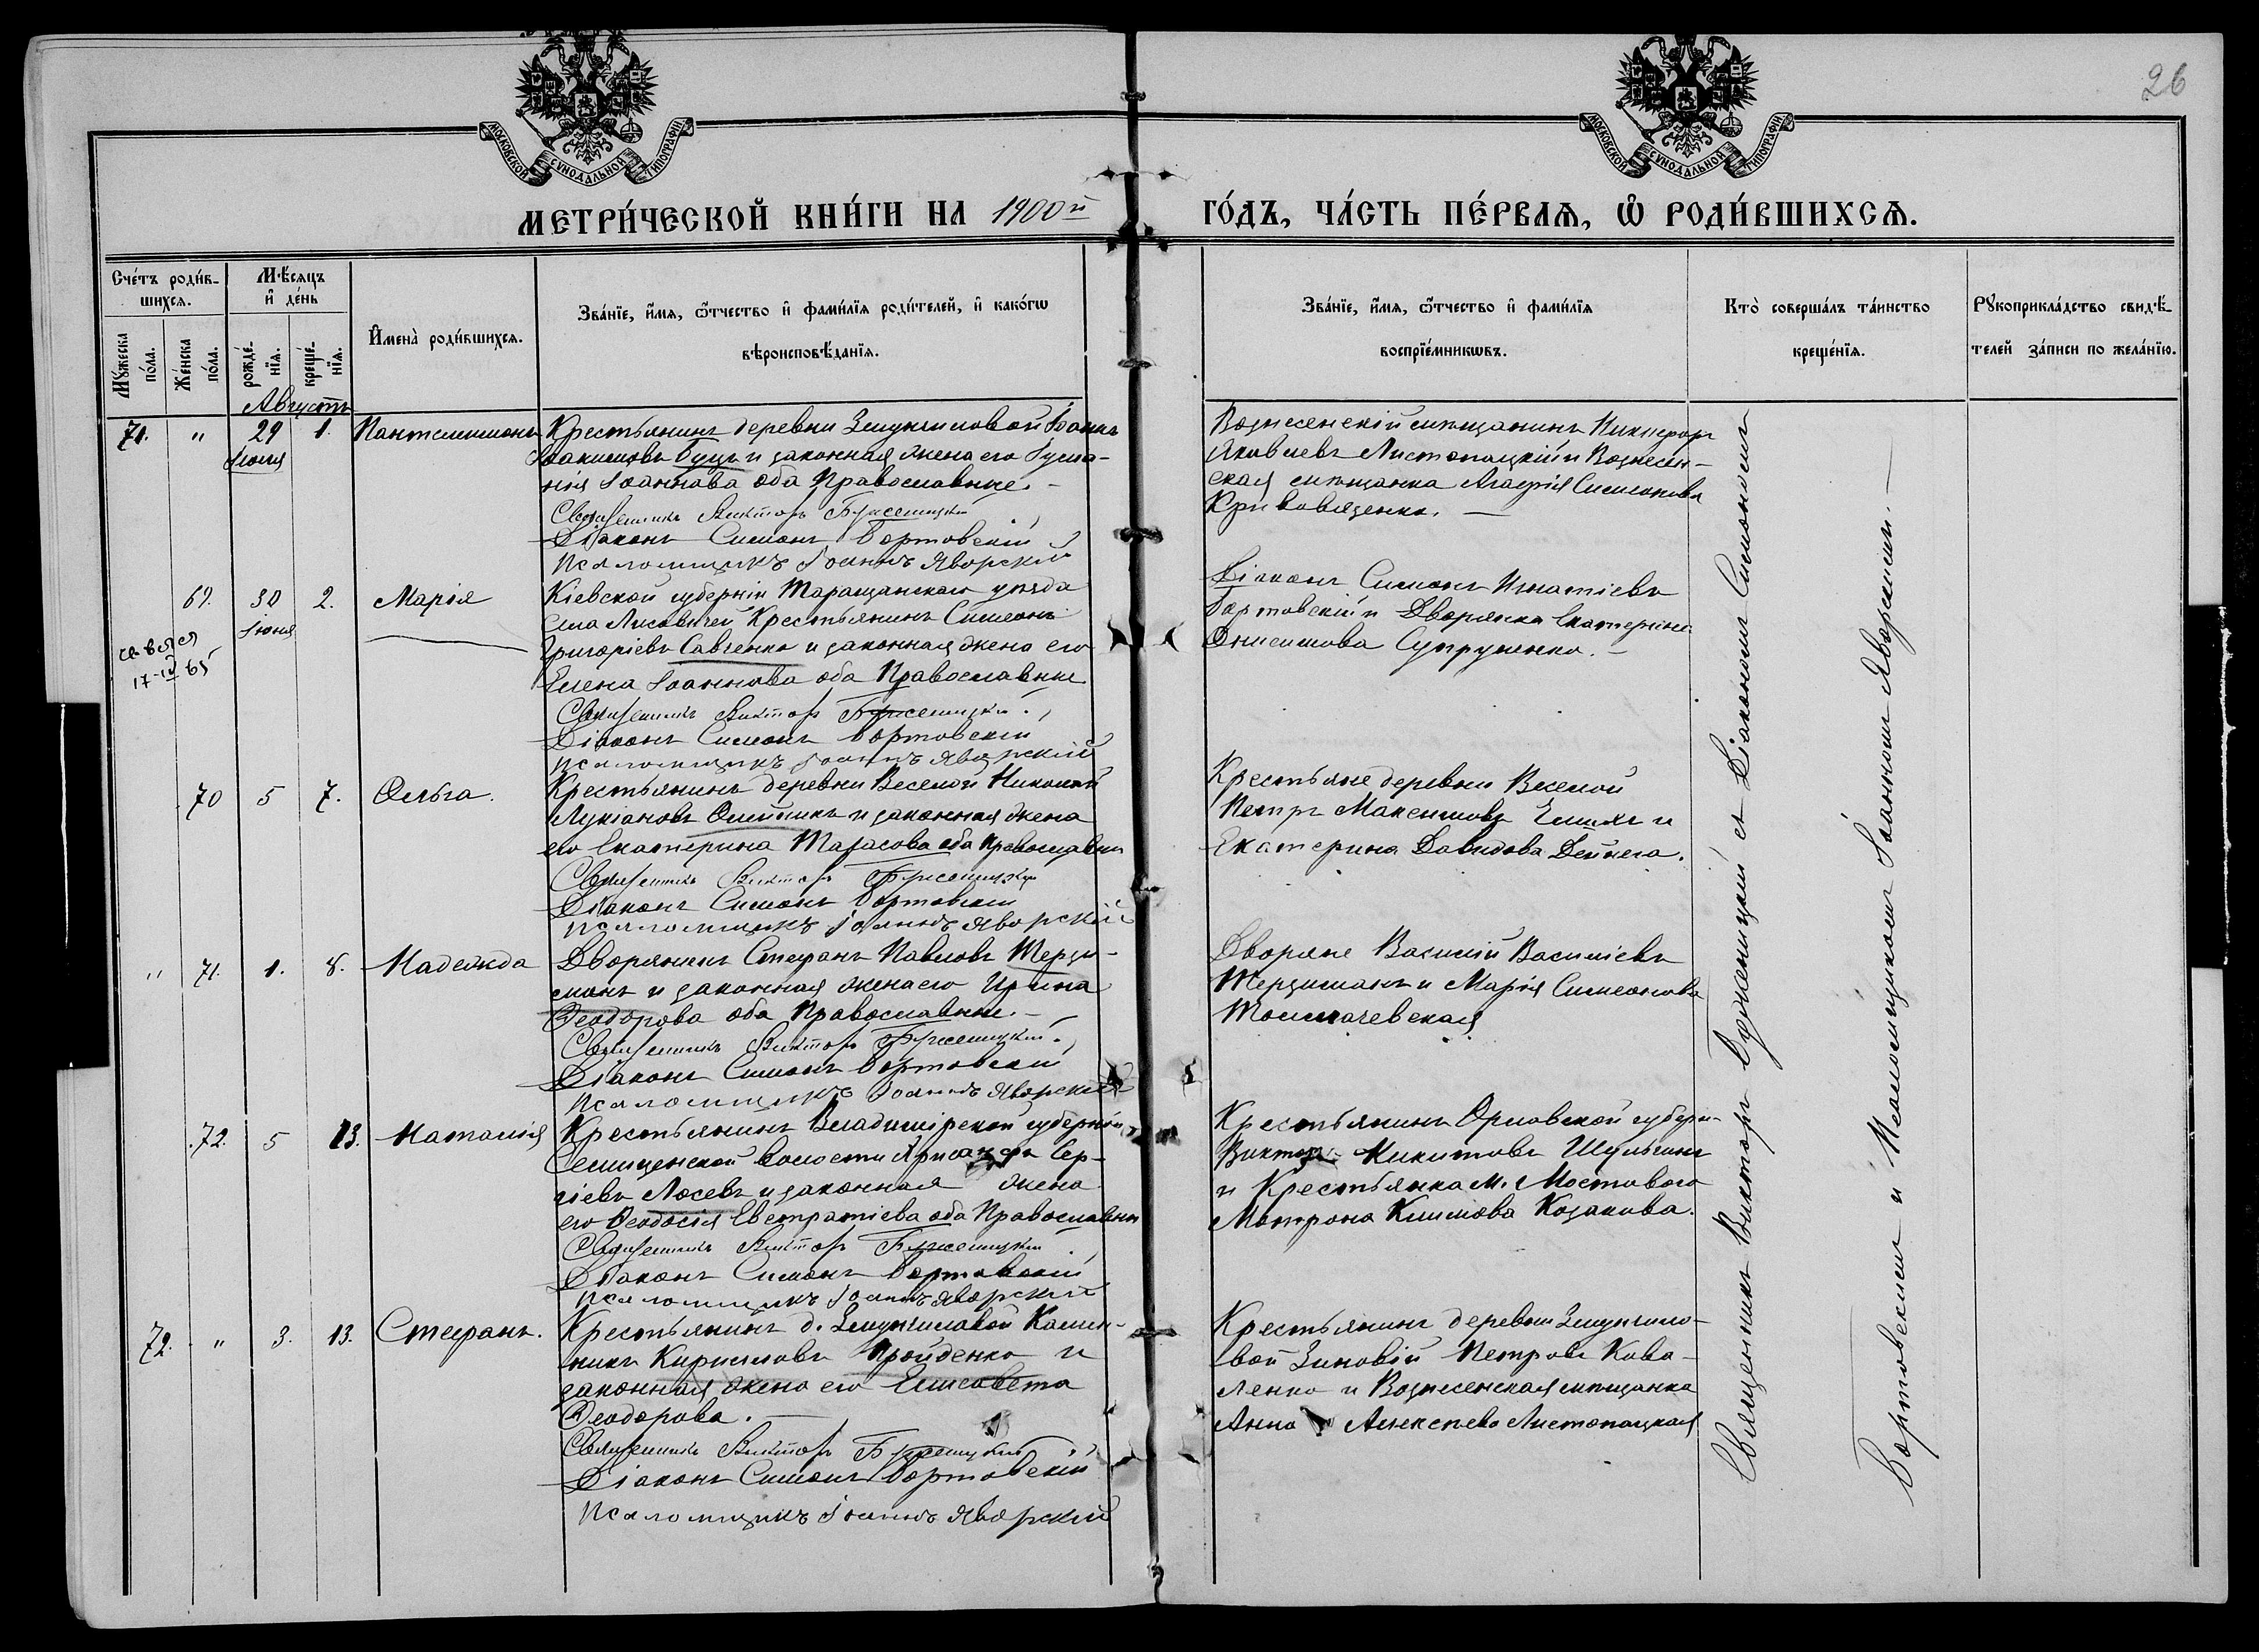 26
МОСКОВСКОЙ СУНОДАЛЬНОЙ ТИПОГРАФІИ
МОСКОВСКОЙ СУНОДАЛЬНОЙ ТИПОГРАФІИ
МЕТРИ́ЧЕСКОЙ КНИ́ГИ НА 1900й ГО́ДЪ, ЧА́СТЬ ПЕ́РВАѦ, Ѡ҆ РОДИ́ВШИХСѦ.
Сче́тъ роди́в-
шихсѧ.
Мꙋ́жеска по́ла.
Же́нска по́ла.
Мѣ́сѧцъ
и҆ де́нь
рожде́-нїѧ.
креще́-нїѧ.
И҆мена̀ роди́вшихсѧ.
Зва́нїе, и҆́мѧ, ѻ҆́тчество и҆ фами́лїѧ роди́телей, и҆ како́гѡ
вѣроисповѣ́данїѧ.
Зва́нїе, и҆́мѧ, ѻ҆́тчество и҆ фами́лїѧ
воспрїе́мникѡвъ.
Кто̀ соверша́лъ та́инство
креще́нїѧ.
Рꙋкоприкла́дство свидѣ́-
телей за́писи по жела́нїю.
Августъ
71. " 29 1. Пантелеимонъ
Іюля
Крестьянинъ деревни Змунчиловой Іоаннъ
Іоакимовъ Буцъ и законная жена его Гула-
нія Іоаннова оба Православные.
Священникъ Викторъ Бржесицкій
Діаконъ Симеонъ Бортовскій
Псаломщикъ Іоаннъ Яворскій
Вознесенскій мѣщанинъ Никифоръ
Яковлевъ Листопацкій и Вознесен-
ская мѣщанка Агафія Симеонова
Кривовяценко.
69. 30 2. Марія
Іюня
св-во
17-IV 65
Кіевской губерніи Таращанскаго уѣзда
села Лисовичей Крестьянинъ Симеонъ
Григоріевъ Савченко и законная жена его
Елена Іоаннова оба Православные
Священникъ Викторъ Бржесицкій
Діаконъ Симеонъ Бортовскій
Псаломщикъ Іоаннъ Яворскій
Діаконъ Симеонъ Игнатіевъ
Бортовскій и Дворянка Екатерина
Онисимова Супруненко.
70 5 7. Ольга.
Крестьянинъ деревни Веселой Николай
Лукіановъ Олейникъ и законная жена
его Екатерина Тарасова оба Православные
Священникъ Викторъ Бржесицкій
Діаконъ Симеонъ Бортовскій
Псаломщикъ Іоаннъ Яворскій
Крестьяне деревни Веселой
Петръ Максимовъ и
Екатерина Давидова Дейнега.
" 71. 1. 8. Надежда
Дворянинъ Стефанъ Павловъ Терзи-
манъ и законная жена его Ирина
Ѳеодорова оба Православные.
Священникъ Викторъ Бржесицкій
Діаконъ Симеонъ Бортовскій
Псаломщикъ Іоаннъ Яворскій
Дворяне Василій Василіевъ
Терзиманъ и Марія Симеонова
Толмачевская
72. 5 13. Наталія
Крестьянинъ Владимірской губерніи
волости Хрисанфъ Сер-
гіевъ Лосевъ и законная жена
его Ѳеодосія Евстратіева оба Православные
Священникъ Викторъ Бржесицкій
Діаконъ Симеонъ Бортовскій
Псаломщикъ Іоаннъ Яворскій
Крестьянинъ Орловской губерн-
Викторъ Никитовъ Шульгинъ
и Крестьянка м. Мостового
Матрона Климова Козакова.
72. " 3. 13. Стефанъ.
Крестьянинъ д. Змунчиловой Калин-
никъ Кирилловъ Пройденко и
законная жена его Елисавета
Ѳеодорова.
Священникъ Викторъ Бржесицкій
Діаконъ Симеонъ Бортовскій
Псаломщикъ Іоаннъ Яворскій
Крестьянинъ деревни Змунчило-
вой Зиновій Петровъ Кова-
ленко и Вознесенская мѣщанка
Анна Алексѣева Листопацкая
Священникъ Викторъ Бржесицкій съ Діакономъ Симеономъ
Бортовскимъ и Псаломщикомъ Іоанномъ Яворскимъ.